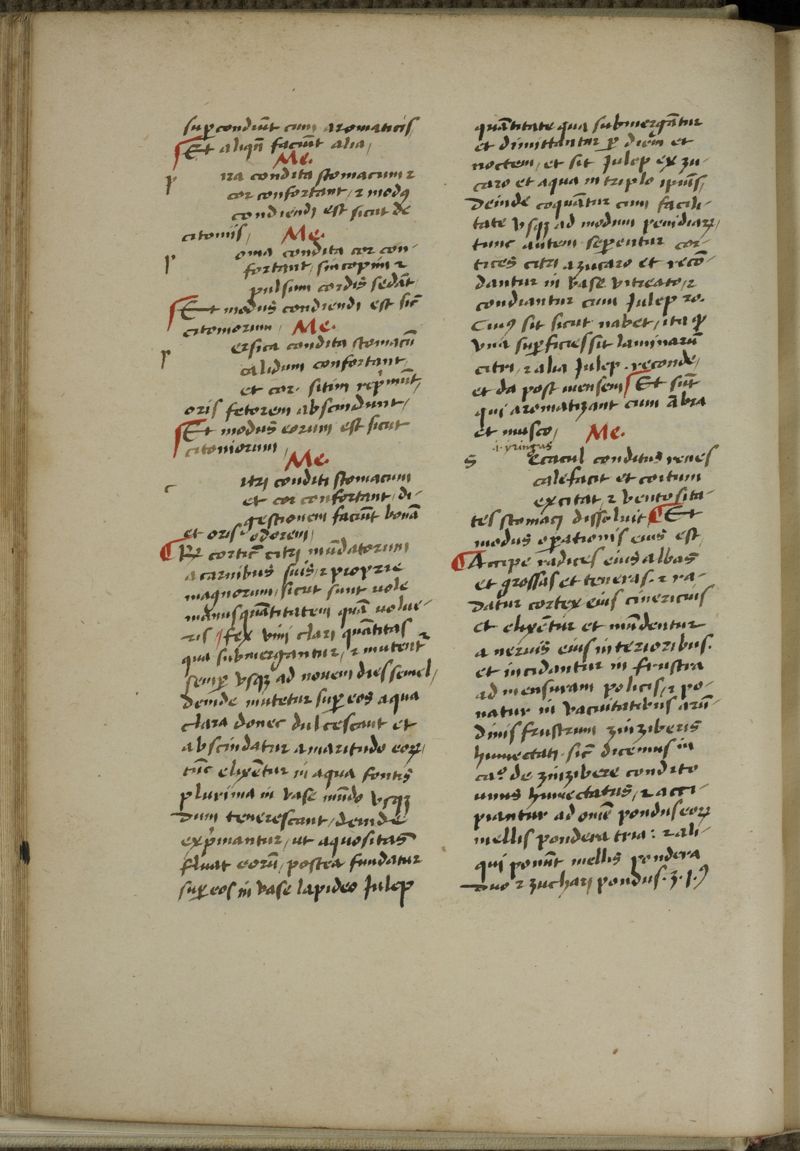 suꝑcondiūt cum aromatics
Et aliqn̄ faciūt alia /
Me.
p ira condita stomacum ⁊
cor confortant / ⁊ modꝰ
condiendi est sicut de
citonijs /
Me.
p oma condita cor con-
fortant / sincopim ⁊
pulsum cordis sedāt /
Et modus condiendi est sic̄
citoniorum /
Me.
p ersica condita stomacū
calidum confortant
et cor. sitim rep̓mūt /
oris fetorem abscindunt /
Et modus eorum est sicut
citoniorum /
Me.
c itri conditi stomacum
et cor confortant / di-
gestionem faciūt bonā
et oris odorem /
Rx corticū citri mūdatorum
a carnibus suis / ⁊ proprie
magnorum / sicut sunt uole
manus quātitatem quā uolue-
ris / fex vini clari quātitas
qua submergantur / ⁊ mutent̄
semꝑ vsqꝫ ad nouem dies semel /
deinde mutetur suꝑ eos aqua
clara donec dulcescant et
abscindatur amaritudo eoꝝ /
tūc elixētur in aqua fontis
plurima in vase mūdo vsqꝫ
dum tenerescant / deinde
exp̓mantur / ut aquositas
fluat eorū / postea fundatur
suꝑ eos in vase lapideo Julep
quātitate qua submergātur
et dimittantur ꝑ diem et
noctem / et sit Julep ex zu-
caro et aqua in triplo ipius /
Deinde coquātur cum facili-
tate vsqꝫ ad modum penidiaꝝ /
tunc autem seꝑentur cor-
tices citri a zucaro et recō-
dantur in vase vitreato / ⁊
condiantur cum Julep ro.
Cuiꝰ sit sicut nabet / ita ꝙ
vna suꝑficies sit laminarū
citri / ⁊ alia Julep. reconde /
et da post mensem / Et sūt
qui aromatizant cum ābra
et musco /
Me.
.i. yringus
S Ecacul conditus renes
calefacit et coitum
excitat / ⁊ ventosita-
tes stomaci dissoluit Et
modus oꝑationis eius est /
Accipe radices eius albas
et grossas et teneras. ⁊ ra-
datur cortex eius cinericius
et elixētur et mūdentur
a neruis eius interioribus.
et incidantur in frustra
ad mensuram policis / ⁊ po-
natur in vacuitatibus arū-
dinis frustrum zinziberis
humectati. sic̄ dicemus in
de zinzibere condito
humectatus / ⁊ acci-
piantur ad omē pondus eoꝝ
mellis pondera tria: ⁊ ali-
qui ponūt mellis pondera
duo ⁊ zuchari pondus.